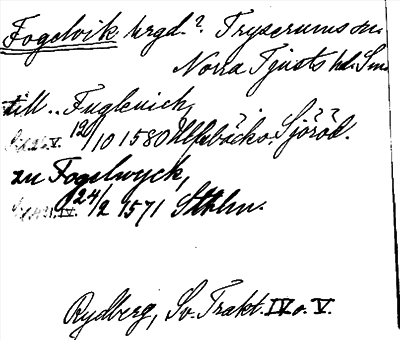 Fogelvik hrgd.? Tryserums sn.
Norra Tjusts hd. Sm.
till.. Fuglenich,
12/10 1580 Ulfsbäck o. Sjöröd.
zu Fogelwyck,
24/2 1571 Sthlm.
Rydberg, Sv. Trakt. IV o. V.